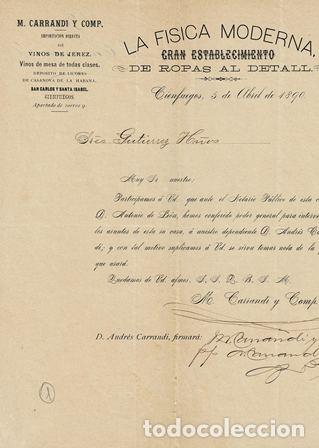 M. CARRANDI Y COMP.
IMPORTACION DIRECTA
DE
VINOS DE JEREZ.
Vinos de mesa de todas clases.
DEPOSITO DE LICORES
DE CASANOVA DE LA HABANA.
SAN CARLOS Y SANTA ISABEL.
CIENFUEGOS
Apartado de correo 9.
LA FISICA MODERNA,
GRAN ESTABLECIMIENTO
DE ROPAS AL DETALL.
Cienfuegos, 5 de Abril de 1890.
Sres Gutierrez Hnos
Muy Sr. nuestro:
Participamos á Vd. que ante el Notario Público de esta
D. Antonio de hemos conferido poder general para
los asuntos de esta su casa, á nuestro dependiente D. Andrés
di; y con tal motivo suplicamos á Vd. se sirva tomar nota de la
que usará.
Quedamos de Vd. afmos. S. S. Q. B. S. M.
M. Carrandi y Comp.
D. Andrés Carrandi, firmará:
todocoleccion
todocoleccion.net